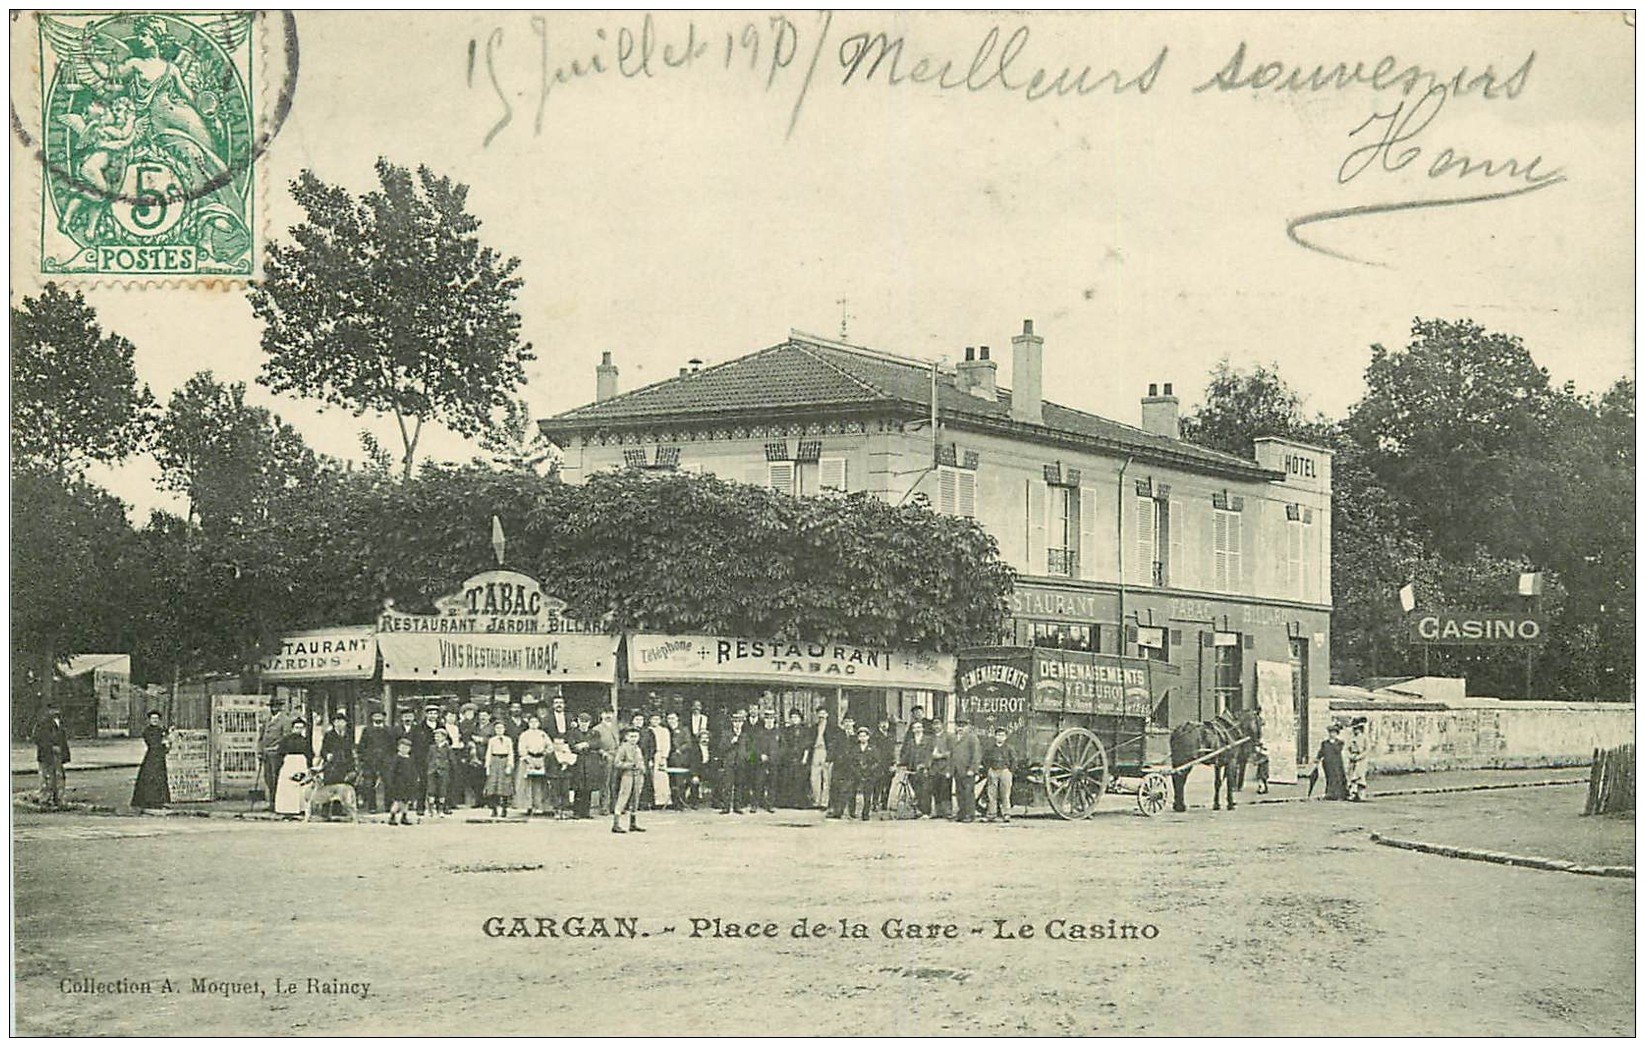 15 Juillet 1907 / Meilleurs souvenirs
Henri
5c
POSTES
HÔTEL
TABAC
RESTAURANT - JARDIN - BILLARD
STAURANT
JARDINS
VINS RESTAURANT TABAC
Téléphone + RESTAURANT +
TABAC
STAURANT TABAC BILLARD
DEMENAGEMENTS
V. FLEUROT
DEMENAGEMENTS
V. FLEUROT
CASINO
GARGAN. - Place de la Gare - Le Casino
Collection A. Moquet, Le Raincy